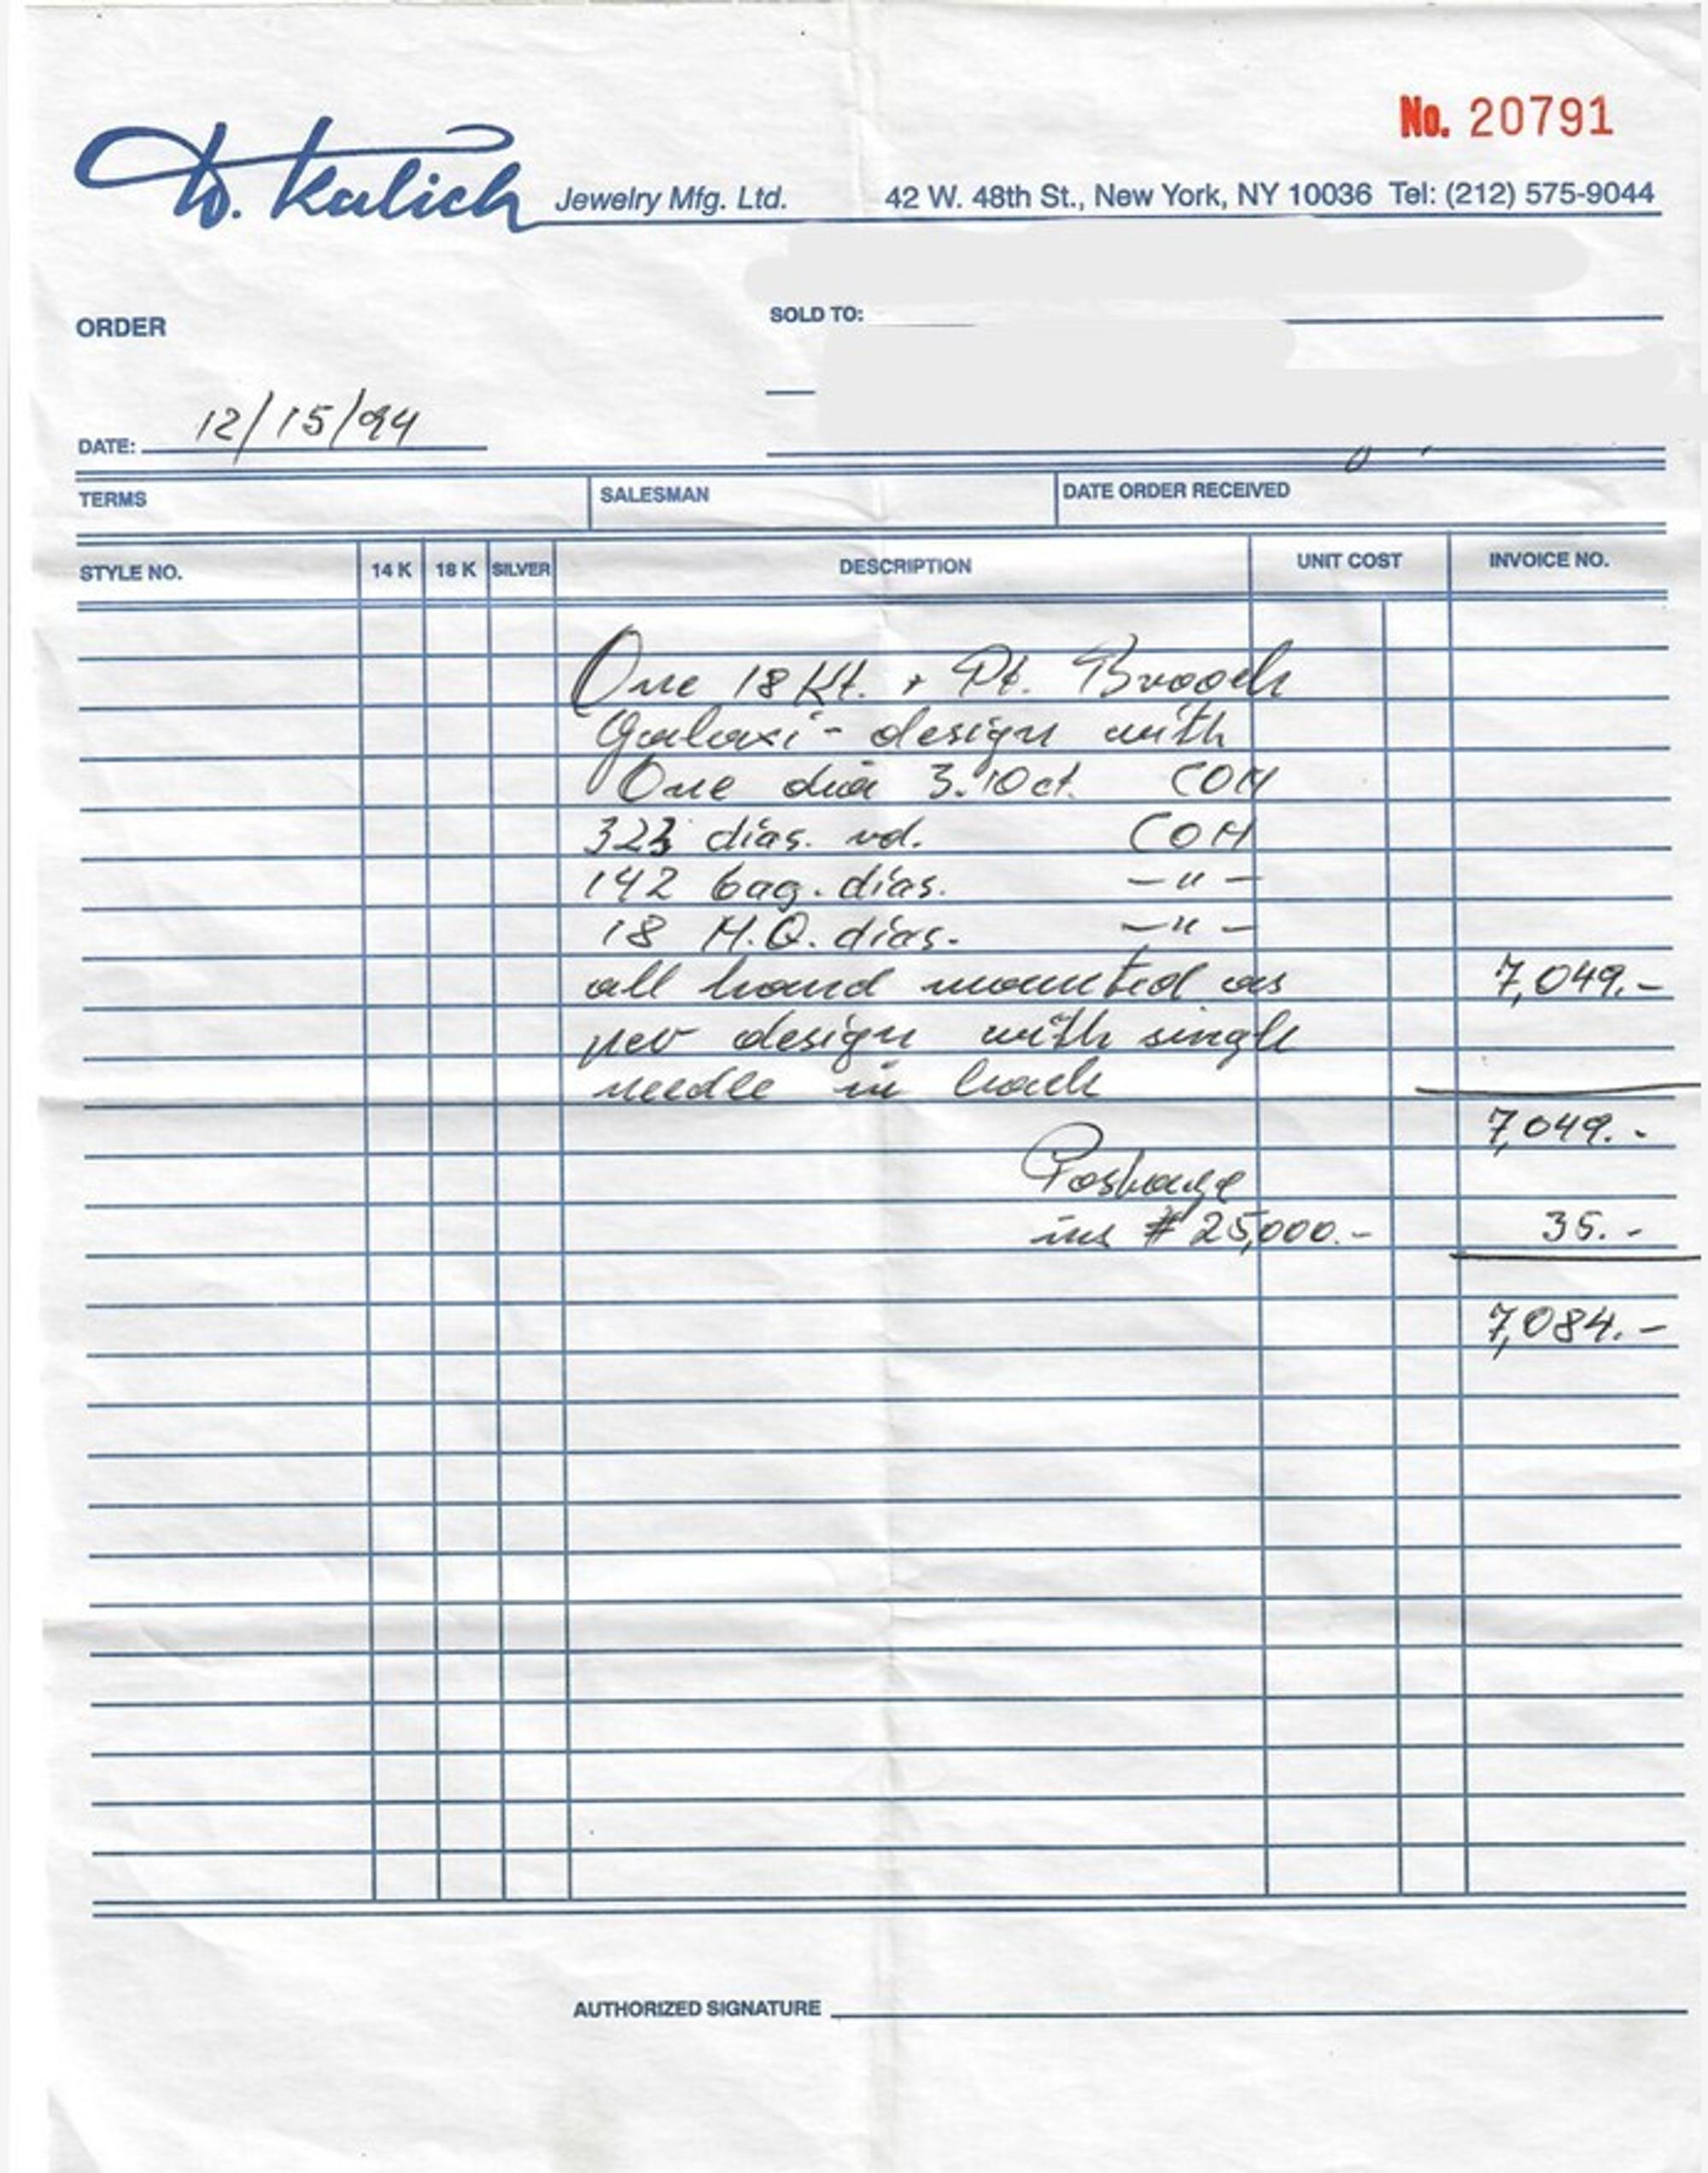 No. 20791
W. Kulich Jewelry Mfg. Ltd. 42 W. 48th St., New York, NY 10036 Tel: (212) 575-9044
SOLD TO:
ORDER
DATE: 12/15/94
TERMS SALESMAN DATE ORDER RECEIVED
STYLE NO. 14 K 18 K SILVER DESCRIPTION UNIT COST INVOICE NO.
One 18 Kt. + Pt. Brooch
Galaxi-design with
One dia 3.10 ct. COM
323 dias. rd. COM
142 bag. dias. — " —
18 M.Q. dias. — " —
all hand mounted as 7,049.-
per design with single
needle in back
7,049.-
Postage
ins $ 25,000.- 35.-
7,084.-
AUTHORIZED SIGNATURE